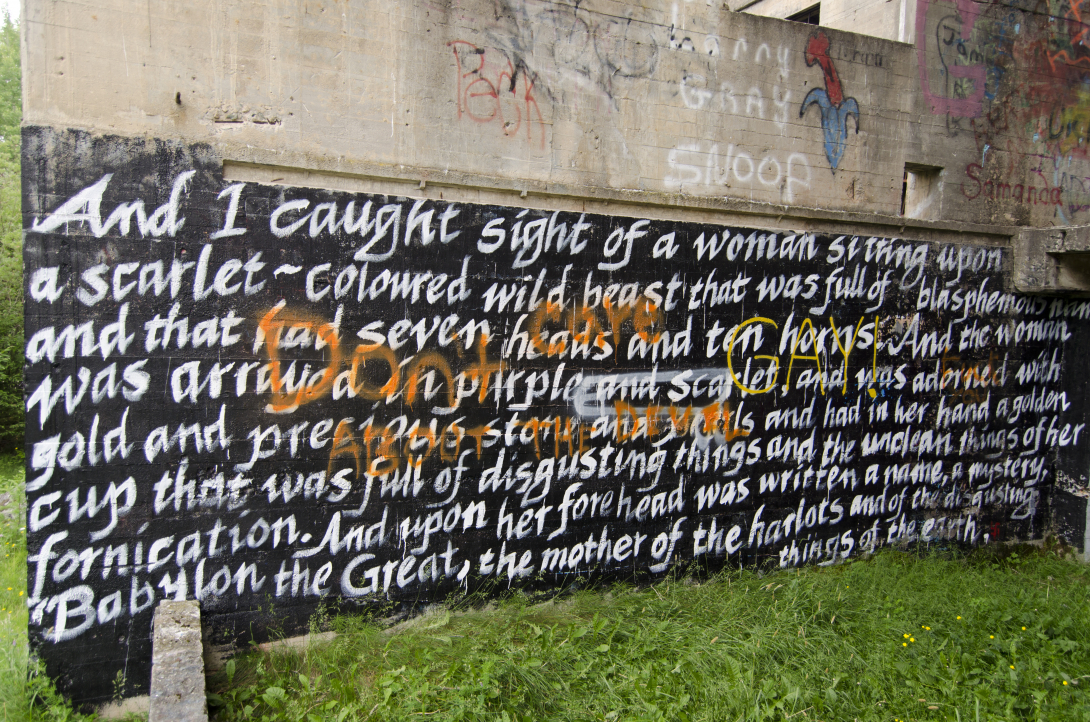 Pack
GRAY
SNOOP
Samanda
And I caught sight of a woman sitting upon
a scarlet~coloured wild beast that was full of blasphemous
and that had seven heads and ten horns. And the woman
was arrayed in purple and scarlet, and was adorned with
gold and precious stones and pearls and had in her hand a golden
cup that was full of disgusting things and the unclean things of her
fornication. And upon her forehead was written a name, a mystery,
"Babylon the Great, the mother of the harlots and of the disgusting
things of the earth.
Don't care
ABOUT THE DEVIL
GAY!